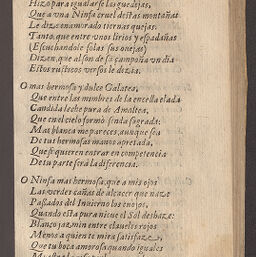 Hizo para igualarse las quedejas,
Que a una Ninfa cruel destas montañas
Le dize enamorado tiernas quejas:
Tanto, que entre unos lirios y espadañas
(Escuchandole solas sus ovejas)
Dizen, que al son de su çampoña un dia
Estos rusticos versos le dezia.
O mas hermosa y dulce Galatea,
Que entre las mimbres de la encella elada
Candida leche pura de Amaltea,
Que en el cielo formò senda sagrada:
Mas blanca me pareces, aunque sea
De tus hermosas manos apretada,
Que si quieren entrar en competencia
De tu parte serà la diferencia.
O Ninfa mas hermosa, que a mis ojos
Las verdes cañas de alcacer que naze
Passados del Invierno los enojos,
Quando esta pura nieve el Sol deshaze:
Blanco jazmin entre claveles rojos
Menos a quien te mira satisfaze,
Que tu boca amorosa quando iguales